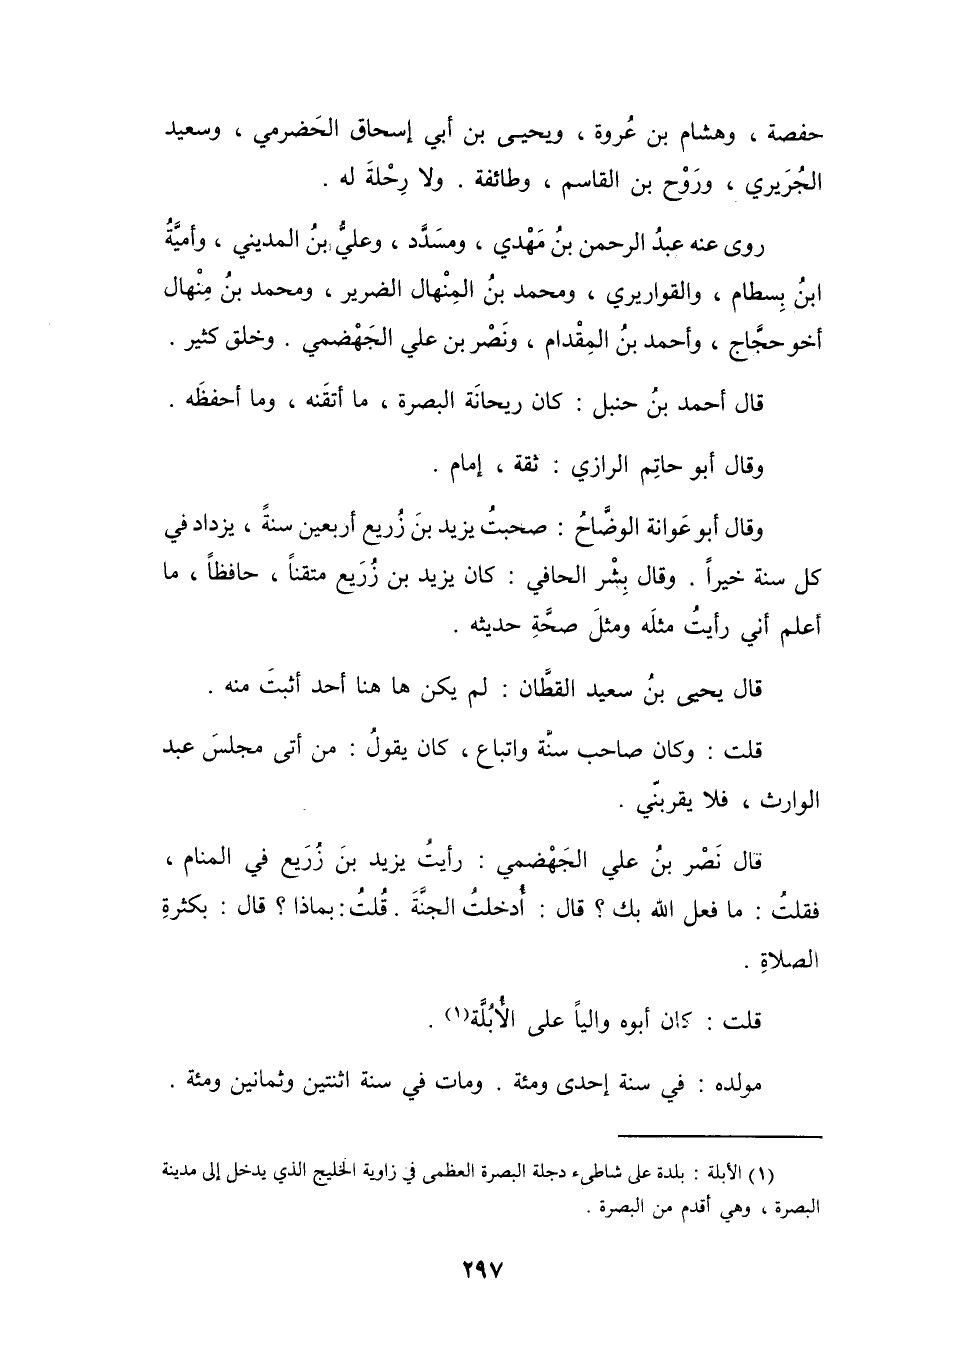 حفصة ، وهشام بن عُروة ، ويحيـى بن أبي إسحاق الحَضرمي ، وسعيد
الجُرَيري ، ورَوْح بن القاسم ، وطائفة . ولا رِحْلةَ له .
روى عنه عبدُ الرحمن بنُ مَهْدي ، ومسَدَّد ، وعليُّ بنُ المديني ، وأميَّةُ
ابنُ بِسطام ، والقواريري ، ومحمد بنُ المِنْهال الضرير ، ومحمد بنُ مِنْهال
أخو حجَّاج ، وأحمد بنُ المِقْدام ، ونَصْر بن علي الجَهْضمي . وخلق كثير .
قال أحمد بنُ حنبل : كان ريحانَة البصرة ، ما أتقَنه ، وما أحفظَه .
وقال أبو حاتِم الرازي : ثقة ، إمام .
وقال أبو عَوانة الوضَّاحُ : صحبتُ يزيد بنَ زُريع أربعين سنةً ، يزداد في
كل سنة خيراً . وقال بِشْر الحافي : كان يزيد بن زُرَيع متقناً ، حافظاً ، ما
أعلم أني رأيتُ مثلَه ومثلَ صحَّةِ حديثه .
قال يحيى بنُ سعيد القطَّان : لم يكن ها هنا أحد أثبتَ منه .
قلت : وكان صاحب سنَّة واتباع ، كان يقولُ : من أتى مجلسَ عبد
الوارث ، فلا يقربنّي .
قال نَصْر بنُ علي الجَهْضمي : رأيتُ يزيد بنَ زُرَيع في المنام ،
فقلتُ : ما فعل الله بك ؟ قال : أُدخلتُ الجنَّةَ . قُلتُ : بماذا ؟ قال : بكثرةِ
الصلاةِ .
قلت : كان أبوه والياً على الأُبُلَّة(١) .
مولده : في سنة إحدى ومئة . ومات في سنة اثنتين وثمانين ومئة .
(١) الأبلة : بلدة على شاطىء دجلة البصرة العظمى في زاوية الخليج الذي يدخل إلى مدينة
البصرة ، وهي أقدم من البصرة .
٢٩٧